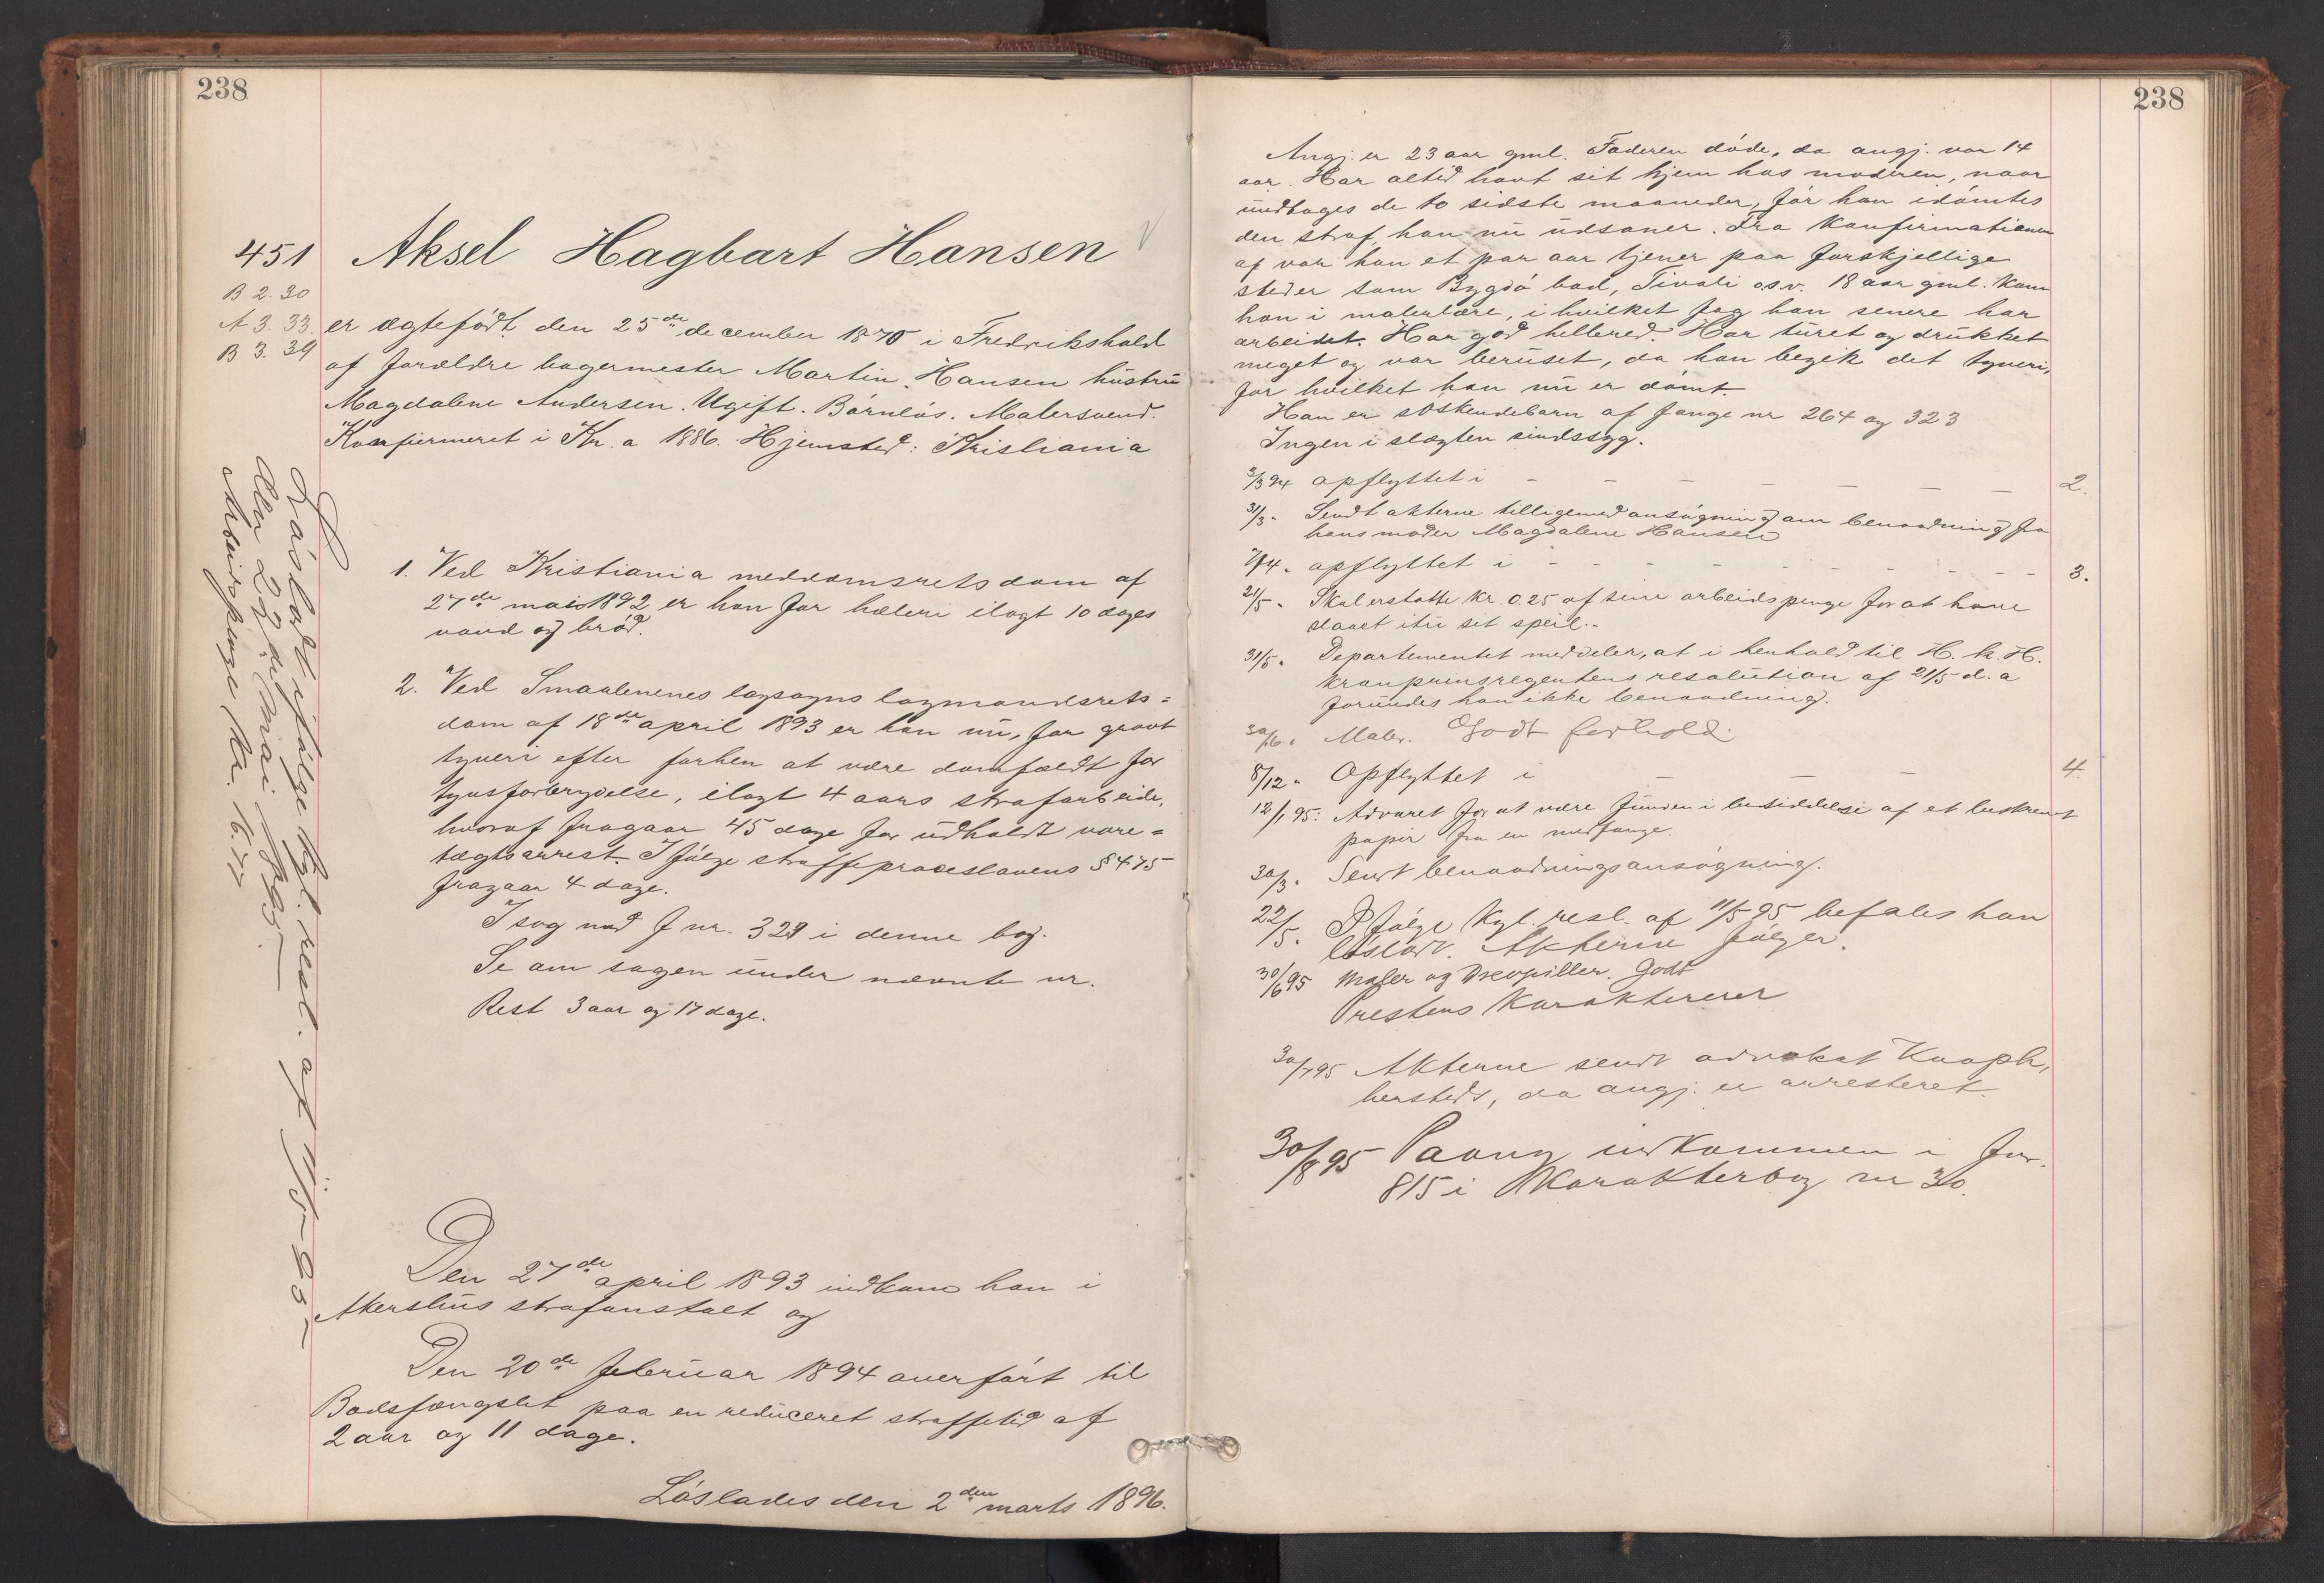 238
451 Aksel Hagbart Hansen
B 2.30
A 3.33.
B 3.39
er ægtefødt den 25de december 1870 i Fredrikshald
af forældre bagermester Martin Hansen hustru
Magdalene Andersen. Ugift. Børnløs. Malersvend.
Konfirmeret i Kr.a 1886. Hjemsted: Kristiania
Løsladt ifølge kgl. resl. af 11/5-95
den 22de mai 1895
Arbeidspenge Kr.
1. Ved Kristiania meddomsrets dom af
27de mai 1892 er han for hæleri ilagt 10 dages
vand og brød.
2. Ved Smaalenenes lagsogns lagmandsrets=
dom af 18de april 1893 er han nu, for grovt
tyveri efter forhen at være domfældt for
tyvsforbrydelse, ilagt 4 aars strafarbeide,
hvoraf fragaar 45 dage for udholdt vare=
tægtsarrest. Ifølge straffeproceslovens § 475
fragaar 4 dage.
I sag med f nr. 323 i denne bog.
Se om sagen under nævnte nr.
Rest 3 aar og 17 dage.
Den 27de april 1893 indkom han i
Akershus strafanstalt og
Den 20de februar 1894 overført til
Bodsfængslet paa en reduceret straffetid af
2 aar og 11 dage.
Løslades den 2den marts 1896.
238
Angj. er 23 aar gml. Faderen døde, da angj. var 14
aar. Har altid havt sit hjem hos moderen, naar
undtages de to sidste maaneder, før han idømtes
den straf, han nu udsoner. Fra Konfirmationen
af var han et par aar tjener paa forskjellige
steder som Bygdø bad, Tivoli o.s.v. 18 aar gml. kom
han i malerlære, i hvilket fag han senere har
arbeidet. Har god helbred. Har turet og drukket
meget og var beruset, da han begik det tyveri,
for hvilket han nu er dømt.
Han er søskendebarn af fange nr 264 og 323
Ingen i slægten sindssyg.
3/3 94 opflyttet i - - - - - - - 2.
31/3 " Sendt akterne tilligemed ansøgning om benaadning fra
hans moder Magdalene Hansen
opflyttet i - - - - - - - 3.
21/5 " Skal erstatte kr. 0.25 af sine arbeidspenge for at have
slaaet itu sit speil.
31/5 " Departementet meddeler, at i henhold til H. k. H.
kronprinsregentens resolution af 21/5 d. a
forundes han ikke benaadning.
30/6 " Maler. Godt forhold.
8/12 " Opflyttet i - - - 4.
12/1 95: Advaret for at være funden i besiddelse af et beskrevet
papir fra en medfange.
30/3 " Sendt benaadningsansøgning.
22/5 " Ifølge kgl. resl. af 11/5 95 befales han
løsladt. Akterne følger.
30/6 95 Maler og Drevpiller. Godt
Prestens Karakterer
30/7 95 Akterne sendt advokat Knoph,
hersteds, da angj. er arresteret.
30/8 95 Paany indkommen i Fnr.
815 i Karakterbog nr 30.